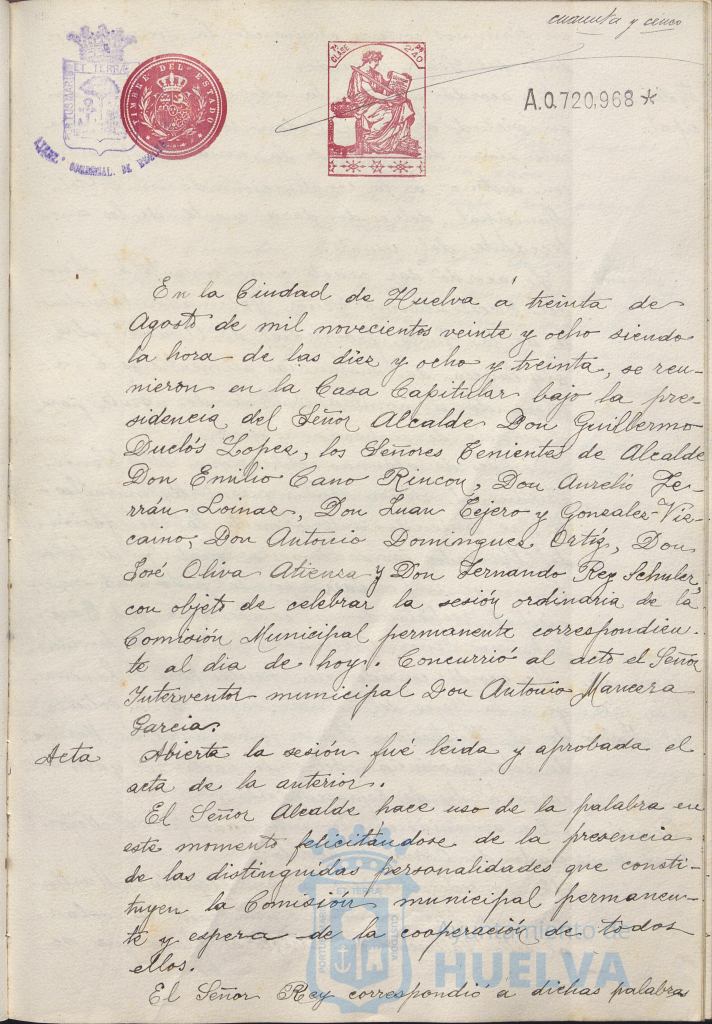 cuarenta y cinco
ET TERRÆ
TIMBRE DEL ESTADO
7ª CLASE 2'40 PS
A.0.720,968*
En la Ciudad de Huelva á treinta de
Agosto de mil novecientos veinte y ocho siendo
la hora de las diez y ocho y treinta, se reu-
nieron en la Casa Capitular bajo la pre-
sidencia del Señor Alcalde Don Guillermo
Duclós Lopez, los Señores Tenientes de Alcalde
Don Emilio Cano Rincon, Don Aurelio Fe-
rrán Loinaz, Don Juan Tejero y Gonzalez-Viz-
caino, Don Antonio Dominguez Ortíz, Don
José Oliva Atienza y Don Fernando Rey Schuler,
con objeto de celebrar la sesión ordinaria de la
Comisión Municipal permanente correspondien-
te al dia de hoy. Concurrió al acto el Señor
Interventor municipal Don Antonio Mancera
Garcia.
Acta Abierta la sesión fué leida y aprobada el
acta de la anterior.
El Señor Alcalde hace uso de la palabra en
este momento felicitándose de la presencia
de las distinguidas personalidades que consti-
tuyen la Comisión municipal permanen-
te y espera de la cooperación de todos
ellos.
El Señor Rey correspondió á dichas palabras
Ayuntamiento de
HUELVA